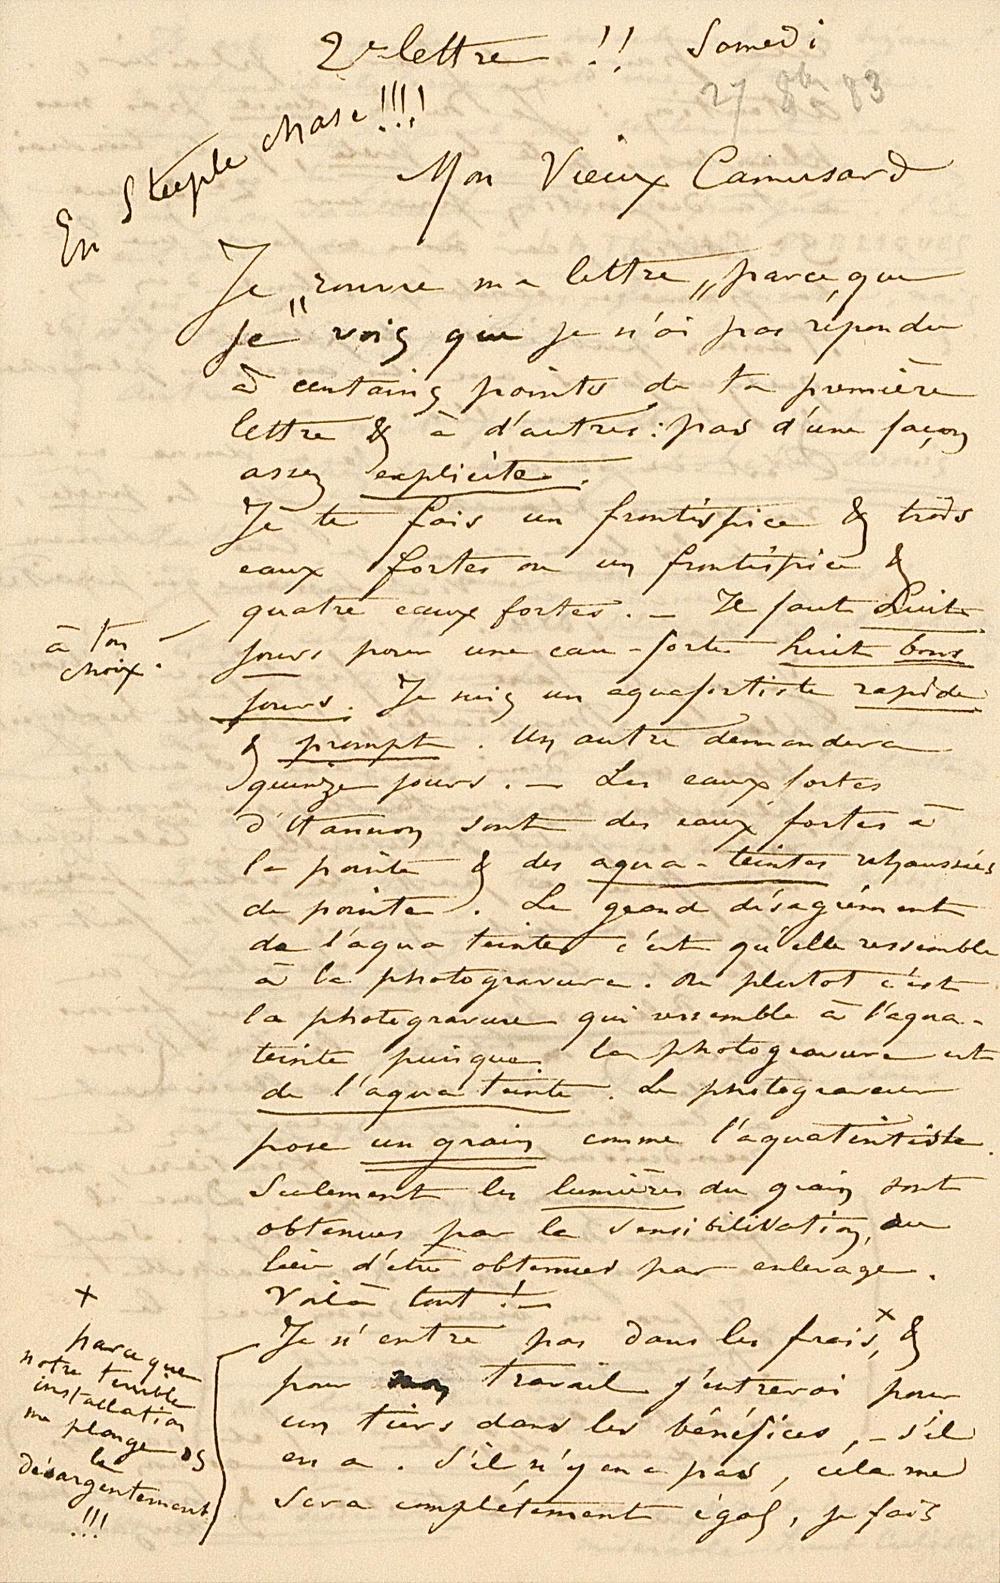 2e lettre !! Samedi
27 8bre 83
En Steeple chase !!!!
Mon Vieux Camusard
Je "rouvre ma lettre" parce que
je vois que je n'ai pas répondu
à certains points de ta première
lettre & à d'autres : pas d'une façon
assez explicite.
Je te fais un frontispice & trois
eaux fortes ou un frontispice &
quatre eaux fortes. — Il faut huit
à ton choix.
jours pour une eau-forte huit bons
jours. Je suis un aquafortiste rapide
& prompt. Un autre demandera
quinze jours. — Les eaux fortes
d'Hannon sont des eaux fortes à
la pointe & des aqua-teintes rehaussées
de pointe. Le grand désagrément
de l'aqua teinte c'est qu'elle ressemble
à la photogravure. ou plutot c'est
la photogravure qui ressemble à l'aqua-
teinte puisque la photogravure est
de l'aqua teinte. Le photograveur
pose un grain comme l'aquatintiste.
Seulement les lumières du grain sont
obtenues par la sensibilisation, au
lieu d'être obtenues par enlevage.
Voilà tout ! —
Je n'entre pas dans les frais,x &
pour mon travail j'entrerai pour
un tiers dans les bénéfices, — s'il
en a. S'il n'y en a pas, cela me
sera complétement égal, je fais
x
parce que
notre terrible
installation
me plonge ds
le
désargentement
!!!